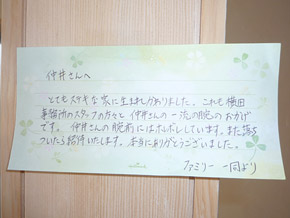 仲井さんへ
とてもステキな家に生まれかわりました。これも横田
事務所のスタッフの方々と仲井さんの一流の腕のおかげ
です。仲井さんの腕前にはホレボレしています。また落ち
ついたら招待いたします。本当にありがとうございました。
ファミリー 一同より